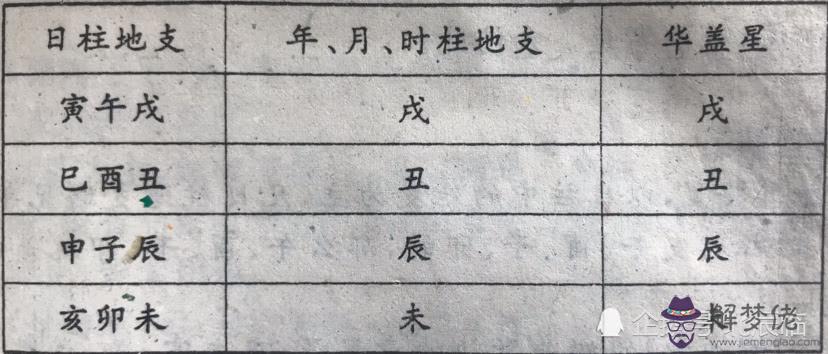 日柱地支 年、月、时柱地支 华盖星
寅午戌 戌 戌
巳酉丑 丑 丑
申子辰 辰 辰
亥卯未 未
解梦佬
www.jiemenglao.com